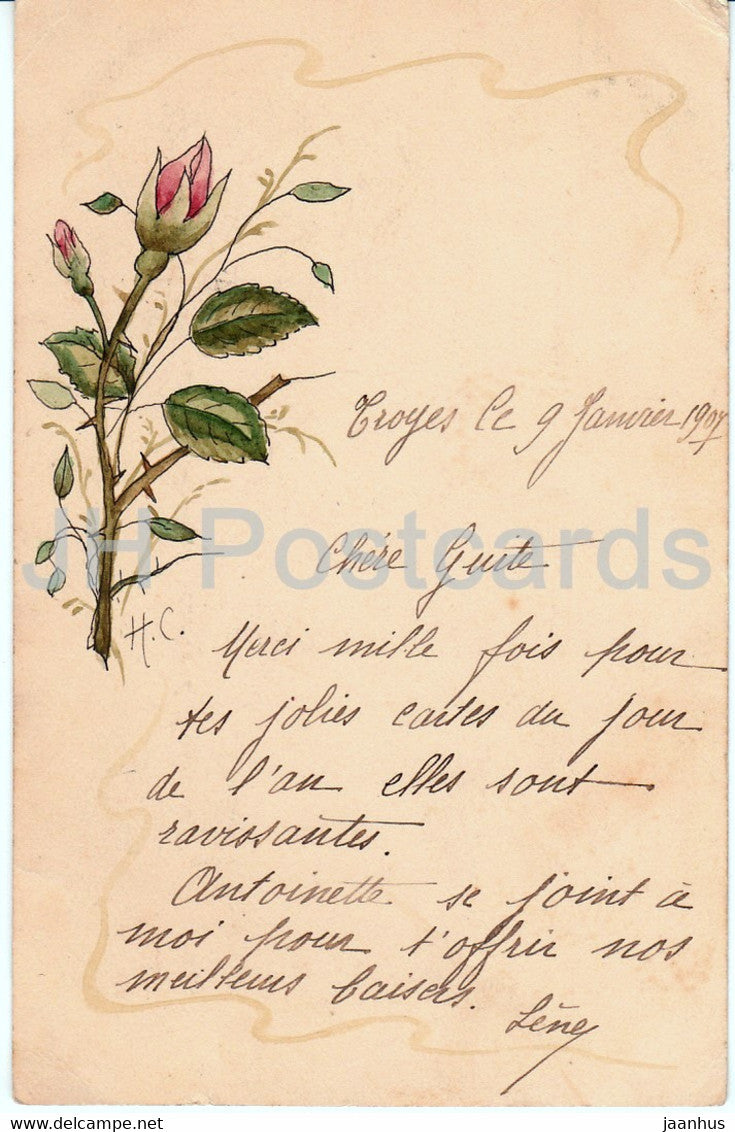 Troyes le 9 Janvier 1907
Chère Guite
H.C.
Merci mille fois pour
tes jolies cartes du jour
de l'an elles sont
ravissantes.
Antoinette se joint à
moi pour t'offrir nos
meilleurs baisers.
Lène
JH Postcards
delcampe.net
jaanhus